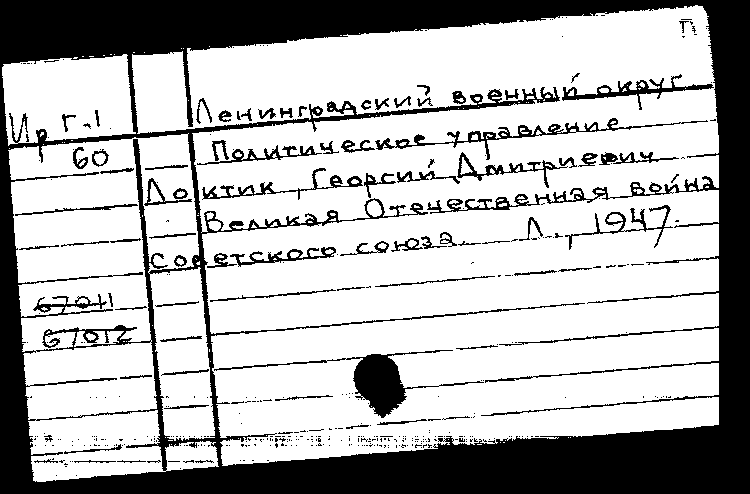 П
Ленинградский военный округ
Ир Г.1
60
Политическое управление
Локтик, Георгий Дмитриевич
Великая Отечественная война
советского союза. Л., 1947.
67011
67012